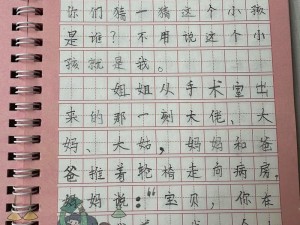 你们猜一猜这个小孩
是谁？不用说这个小
孩就是我。
姐姐从手术室出
来的那一刻大佬、大
妈、大姑，妈妈和爸
爸推着轮椅走向病房，
妈妈说：“宝贝，你在